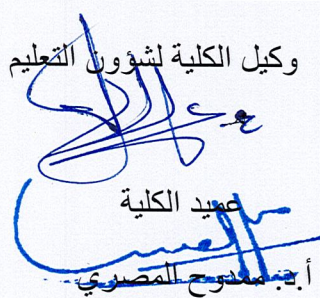 وكيل الكلية لشؤون التعليم
عميد الكلية
أ.د. ممدوح المصري